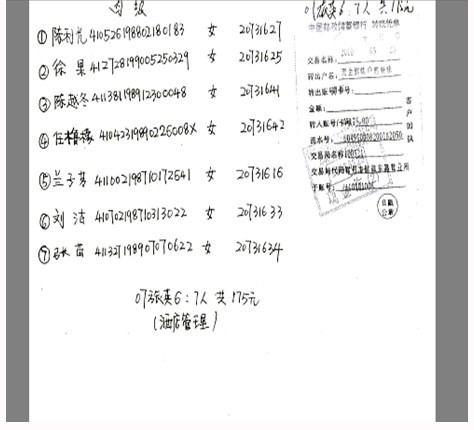 07旅英6:7人 共175元
① 陈利 410526198802180183 女 20731627
② 徐果 412728199005250329 女 20731625
③ 陈越冬 411381198912300048 女 20731641
④ 41042319890226008X 女 20731642
⑤ 兰子芳 411002198710172541 女 20731616
⑥ 刘洁 410702198710313022 女 20731633
⑦ 张苗 411327198907070622 女 20731634
07旅英6:7人 共175元
(酒店管理)
中国邮政储蓄银行
交易名称:
转出户名:
转出账/卡号:
金额:
转入账号/卡号
流水号:
交易局名称
子账号:
客户回执